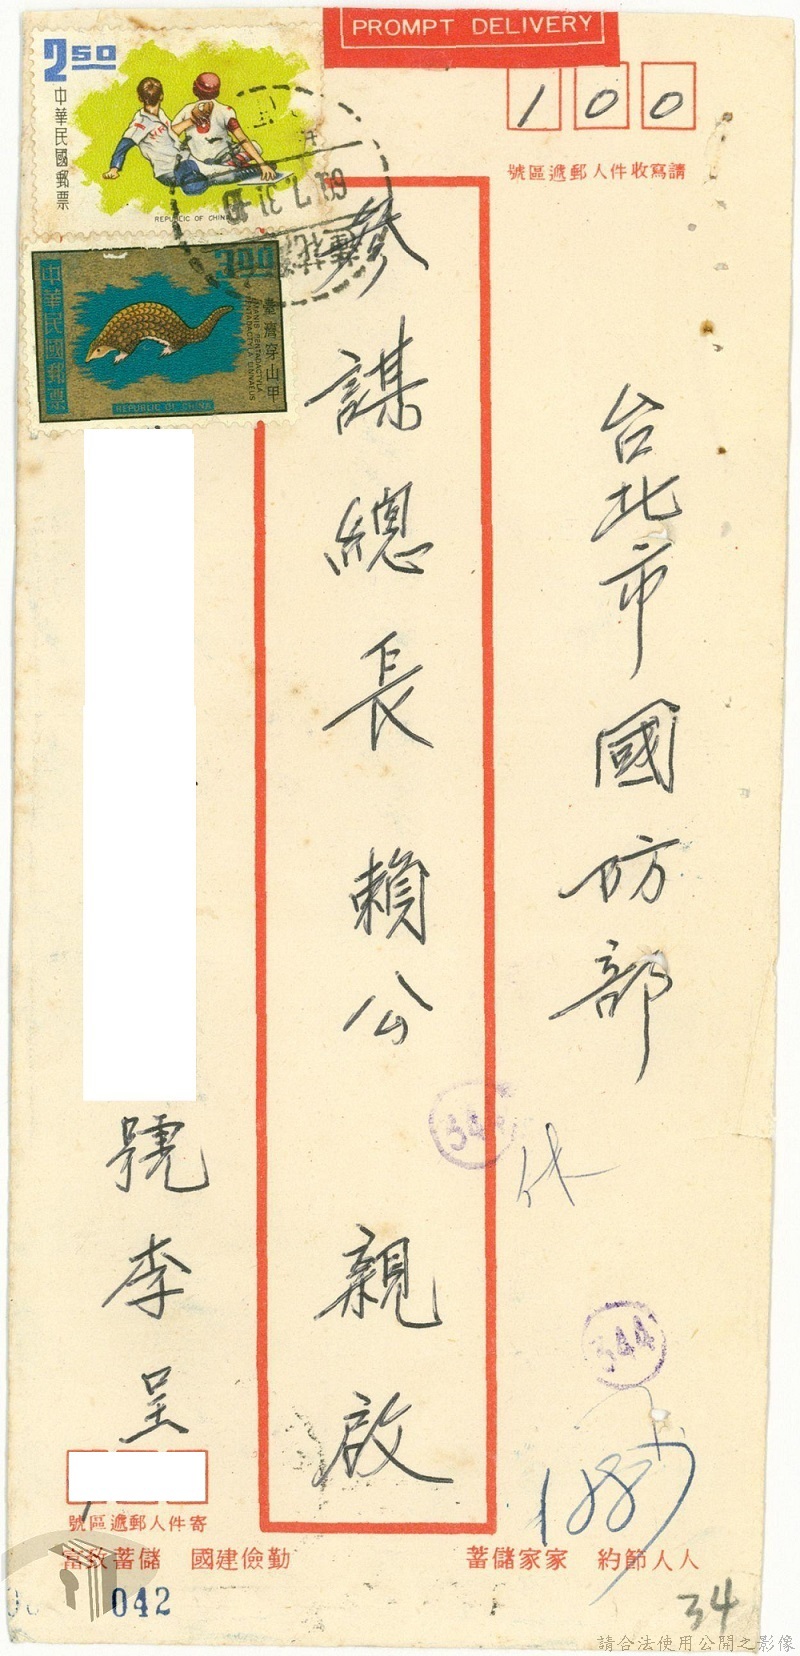 PROMPT DELIVERY
100
號區遞郵人件收寫請
台北市國防部
參謀總長賴公 親啟
號李呈
2 50
中華民國郵票
REPUBLIC OF CHINA
中華民國郵票
臺灣穿山甲
MANIS PENTADACTYLA
PENTADACTYLA LINNAEUS
REPUBLIC OF CHINA
344
號區遞郵人件寄
富致蓄儲 國建儉勤
蓄儲家家 約節人人
042
34
請合法使用公開之影像